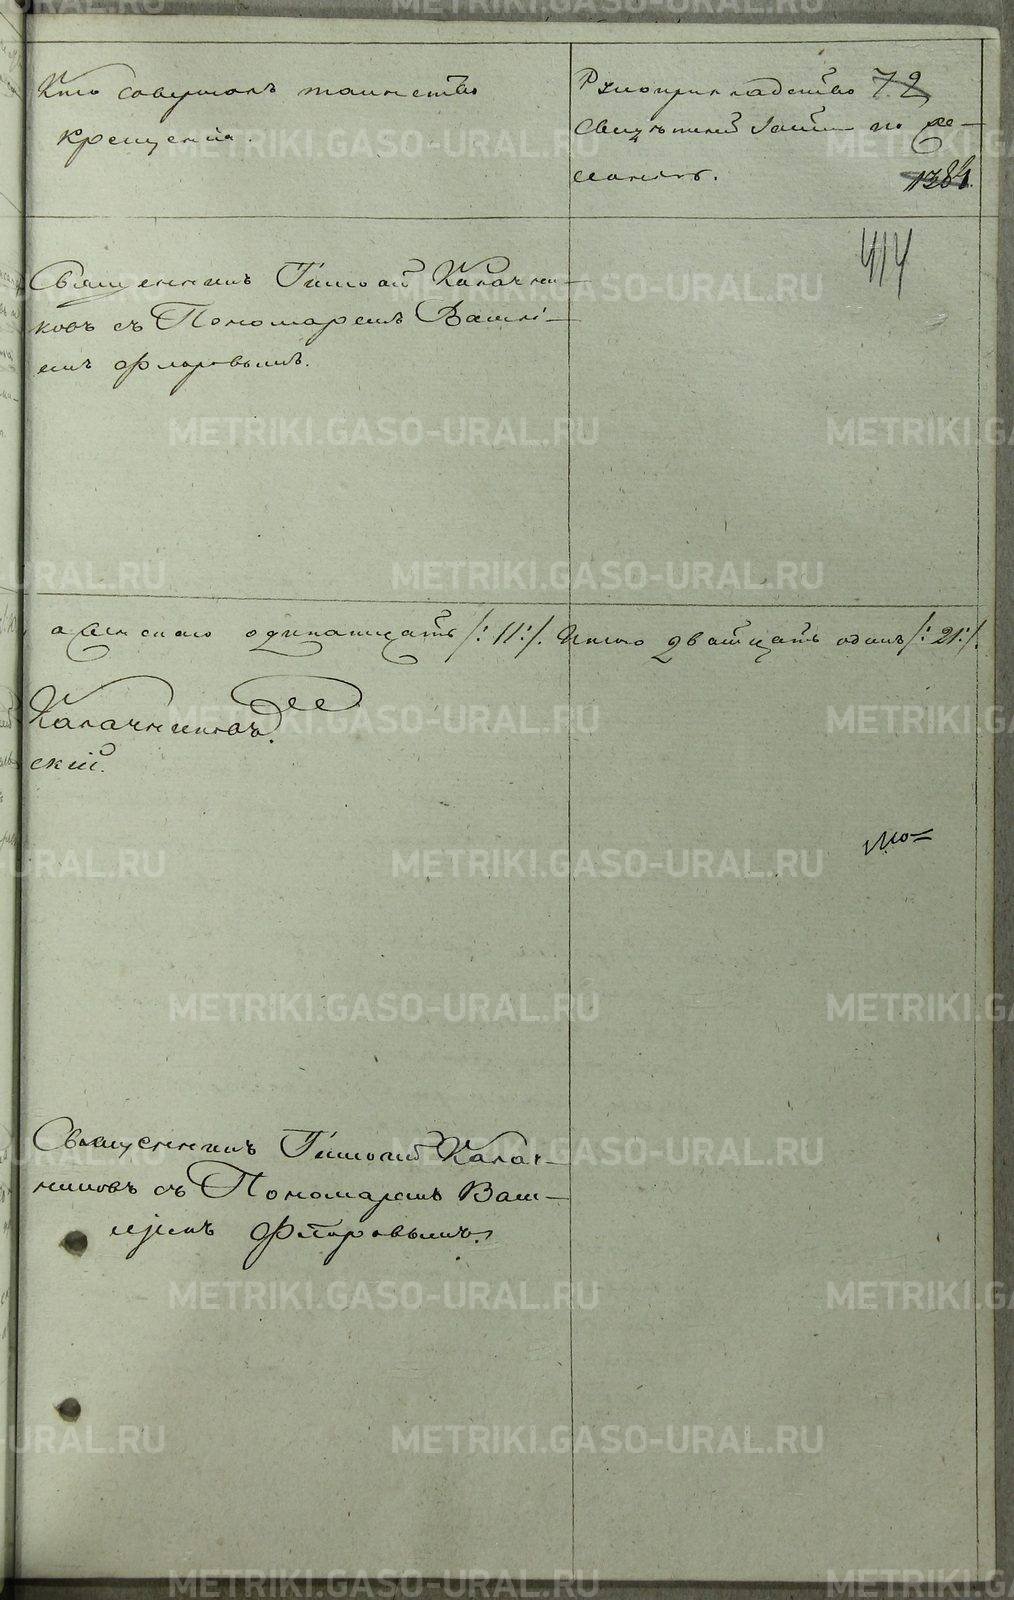 Кто совершалъ таинство
крещенія.
Рукоприкладство 72
свидѣтелей записи по же-
ланію.
1384.
414
Священникъ Тимоѳей Калачни-
ковъ съ Пономаремъ Васил-
емъ Флоровымъ.
а женскаго одинатцать /: 11 :/. Итого дватцать одинъ /: 21 :/.
Калачниковъ.
скій.
Священникъ Тимоѳей Калач-
никовъ съ Пономаремъ Васи-
ліемъ Флоровымъ.
METRIKI.GASO-URAL.RU